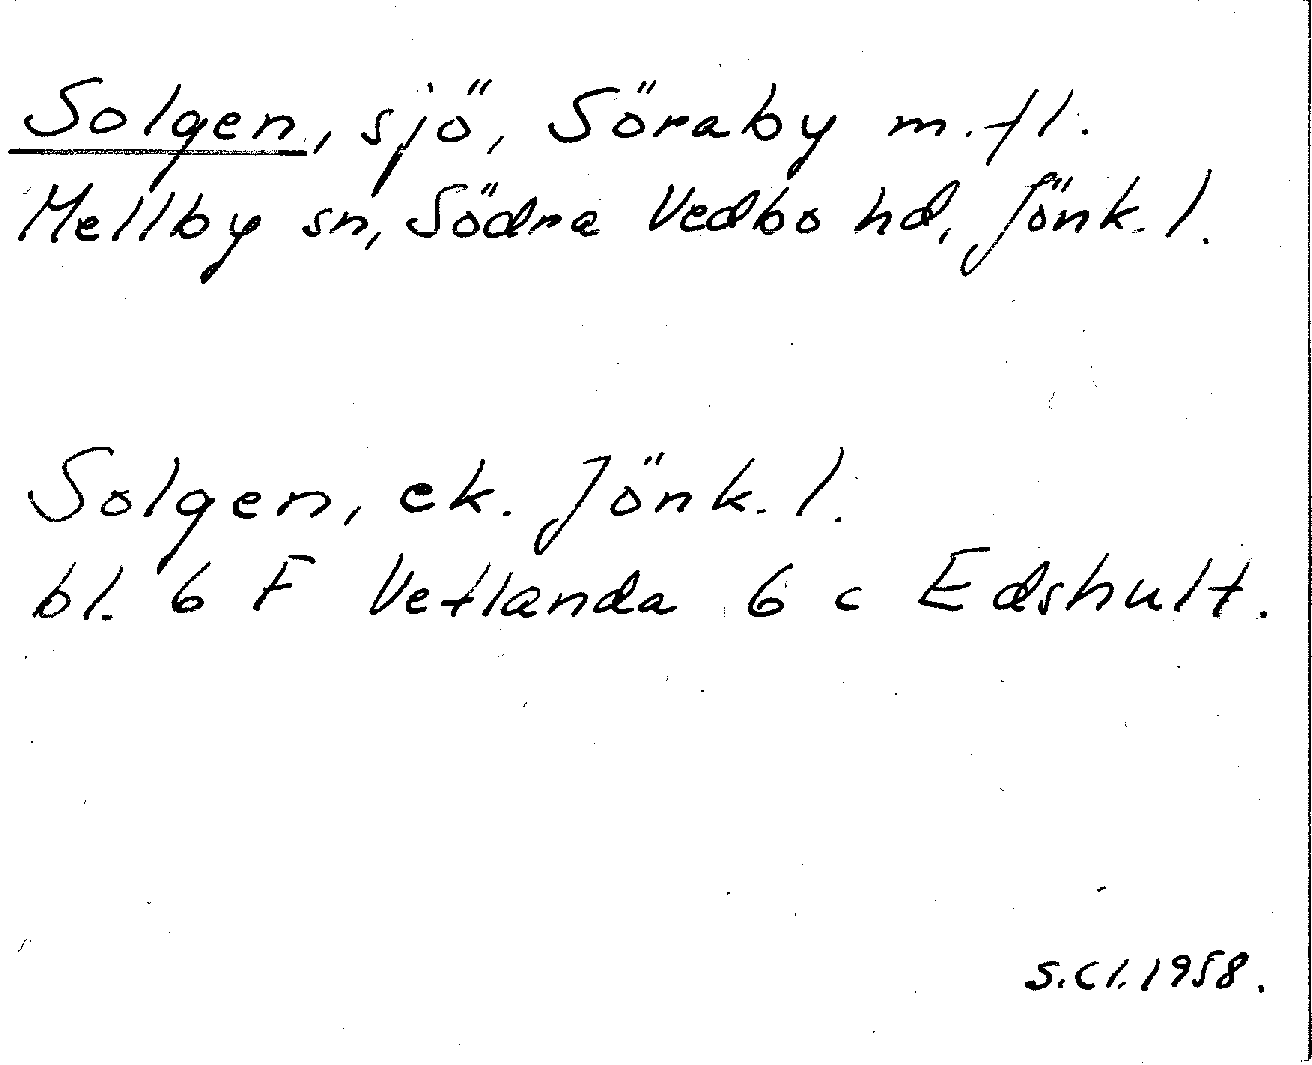 Solgen, sjö, Söraby m.fl.
Mellby sn, Södra Vedbo hd, Jönk. l.
Solgen, ek. Jönk. l.
bl. 6 F Vetlanda 6 c Edshult.
S.Cl.1958.